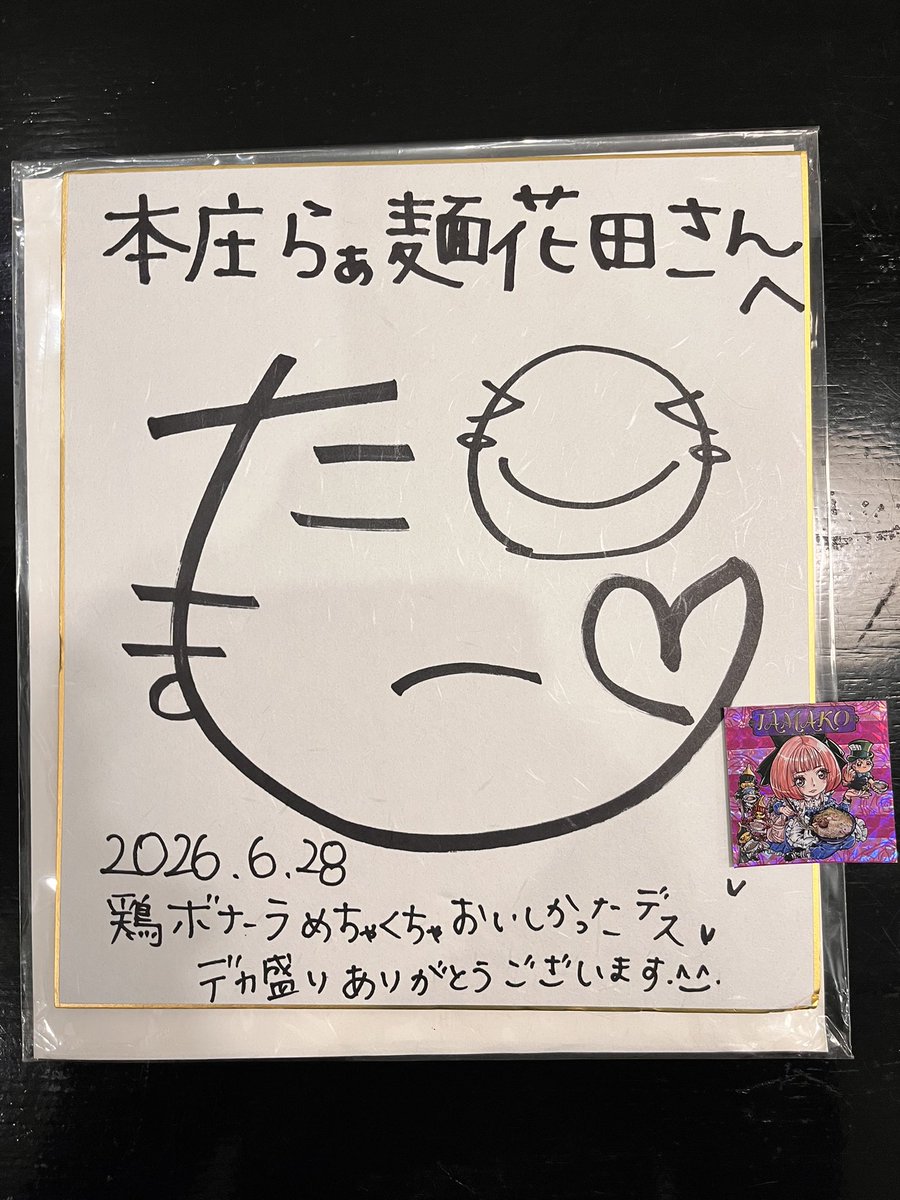 本庄らぁ麺花田さんへ
たま
2026.6.28
鶏ボナーラめちゃくちゃおいしかったデス
デカ盛りありがとうございます.^^.
TAMAKO